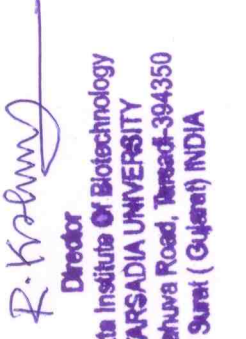 R. Krishnan
Director
ta Institute Of Biotechnology
TARSADIA UNIVERSITY
ehuva Road, Tarsadi-394350
Surat ( Gujarat) INDIA